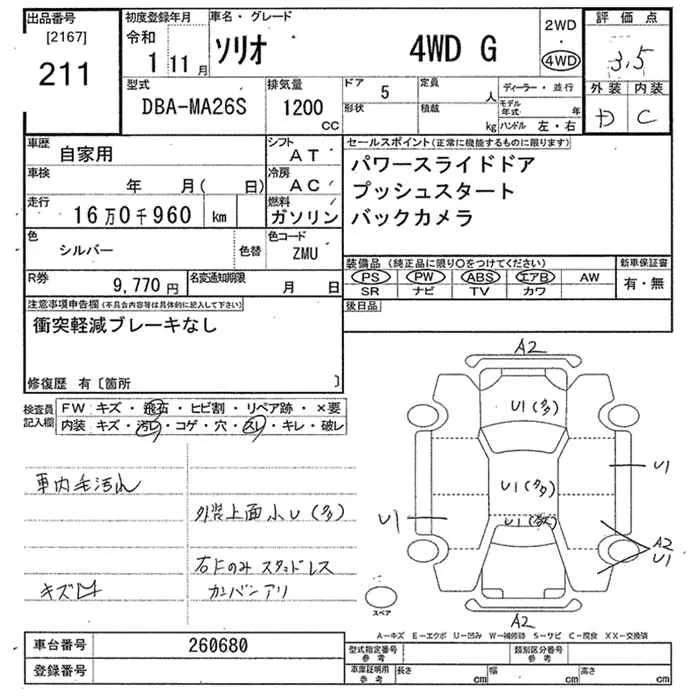 出品番号
[2167]
211
初度登録年月
令和
1 11月
車名・グレード
ソリオ 4WD G
2WD
4WD
評価点
3.5
外装 内装
D C
型式
DBA-MA26S
排気量
1200
CC
ドア 5
形状
定員
人
積載
kg
ディーラー・並行
モデル年式 年
ハンドル 左・右
車歴
自家用
シフト
AT
車検
年 月( 日)
冷房
AC
走行
16万0千960 km
燃料
ガソリン
色
シルバー
色替
色コード
ZMU
R券
9,770円
名変通知期限
月 日
セールスポイント(正常に機能するものに限ります)
パワースライドドア
プッシュスタート
バックカメラ
装備品(純正品に限り○をつけてください)
PS PW ABS エアB AW
SR ナビ TV カワ
新車保証書
有・無
後日品
注意事項申告欄(不具合内容等は具体的に記入して下さい)
衝突軽減ブレーキなし
修復歴 有〔箇所 〕
検査員
記入欄
FW キズ・飛石・ヒビ割・リペア跡・×要
内装 キズ・汚レ・コゲ・穴・スレ・キレ・破レ
車内毛汚れ
外装上面小U(多)
右上のみスタッドレス
キズ
カンバンアリ
A2
U1(多)
U1(多)
U1(多)
U1
U1
A2
U1
A2
スペア
A-キズ E-エクボ U-凹み W-補修跡 S-サビ C-腐食 XX-交換済
車台番号
260680
登録番号
型式指定番号
参考
類別区分番号
参考
車庫証明用
参考
長さ cm
幅 cm
高さ cm